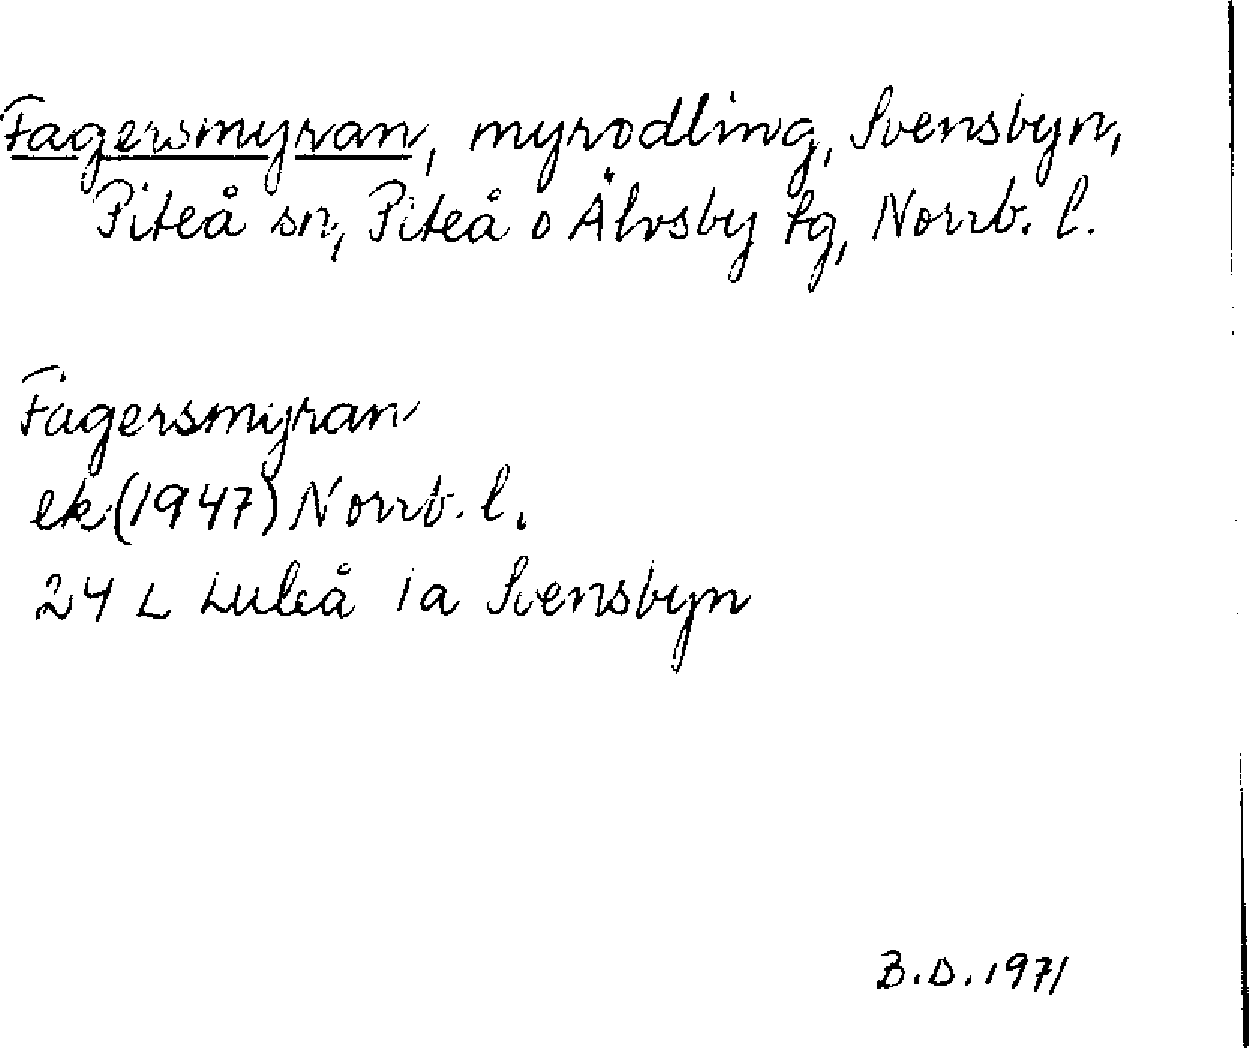 Fagersmyran, myrodling, Svensbyn,
Piteå sn, Piteå o Älvsby tg, Norrb. l.
Fagersmyran
ek (1947) Norrb. l.
24 L Luleå 1a Svensbyn
B.D. 1971